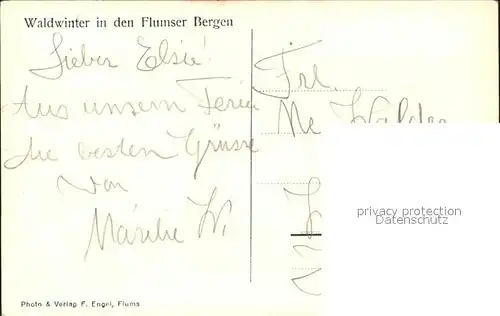 Waldwinter in den Flumser Bergen
Lieber Elsie!
Aus unsern Ferien
die besten Grüsse
von
W.
Frl.
Walder
privacy protection
Photo & Verlag F. Engel, Flums